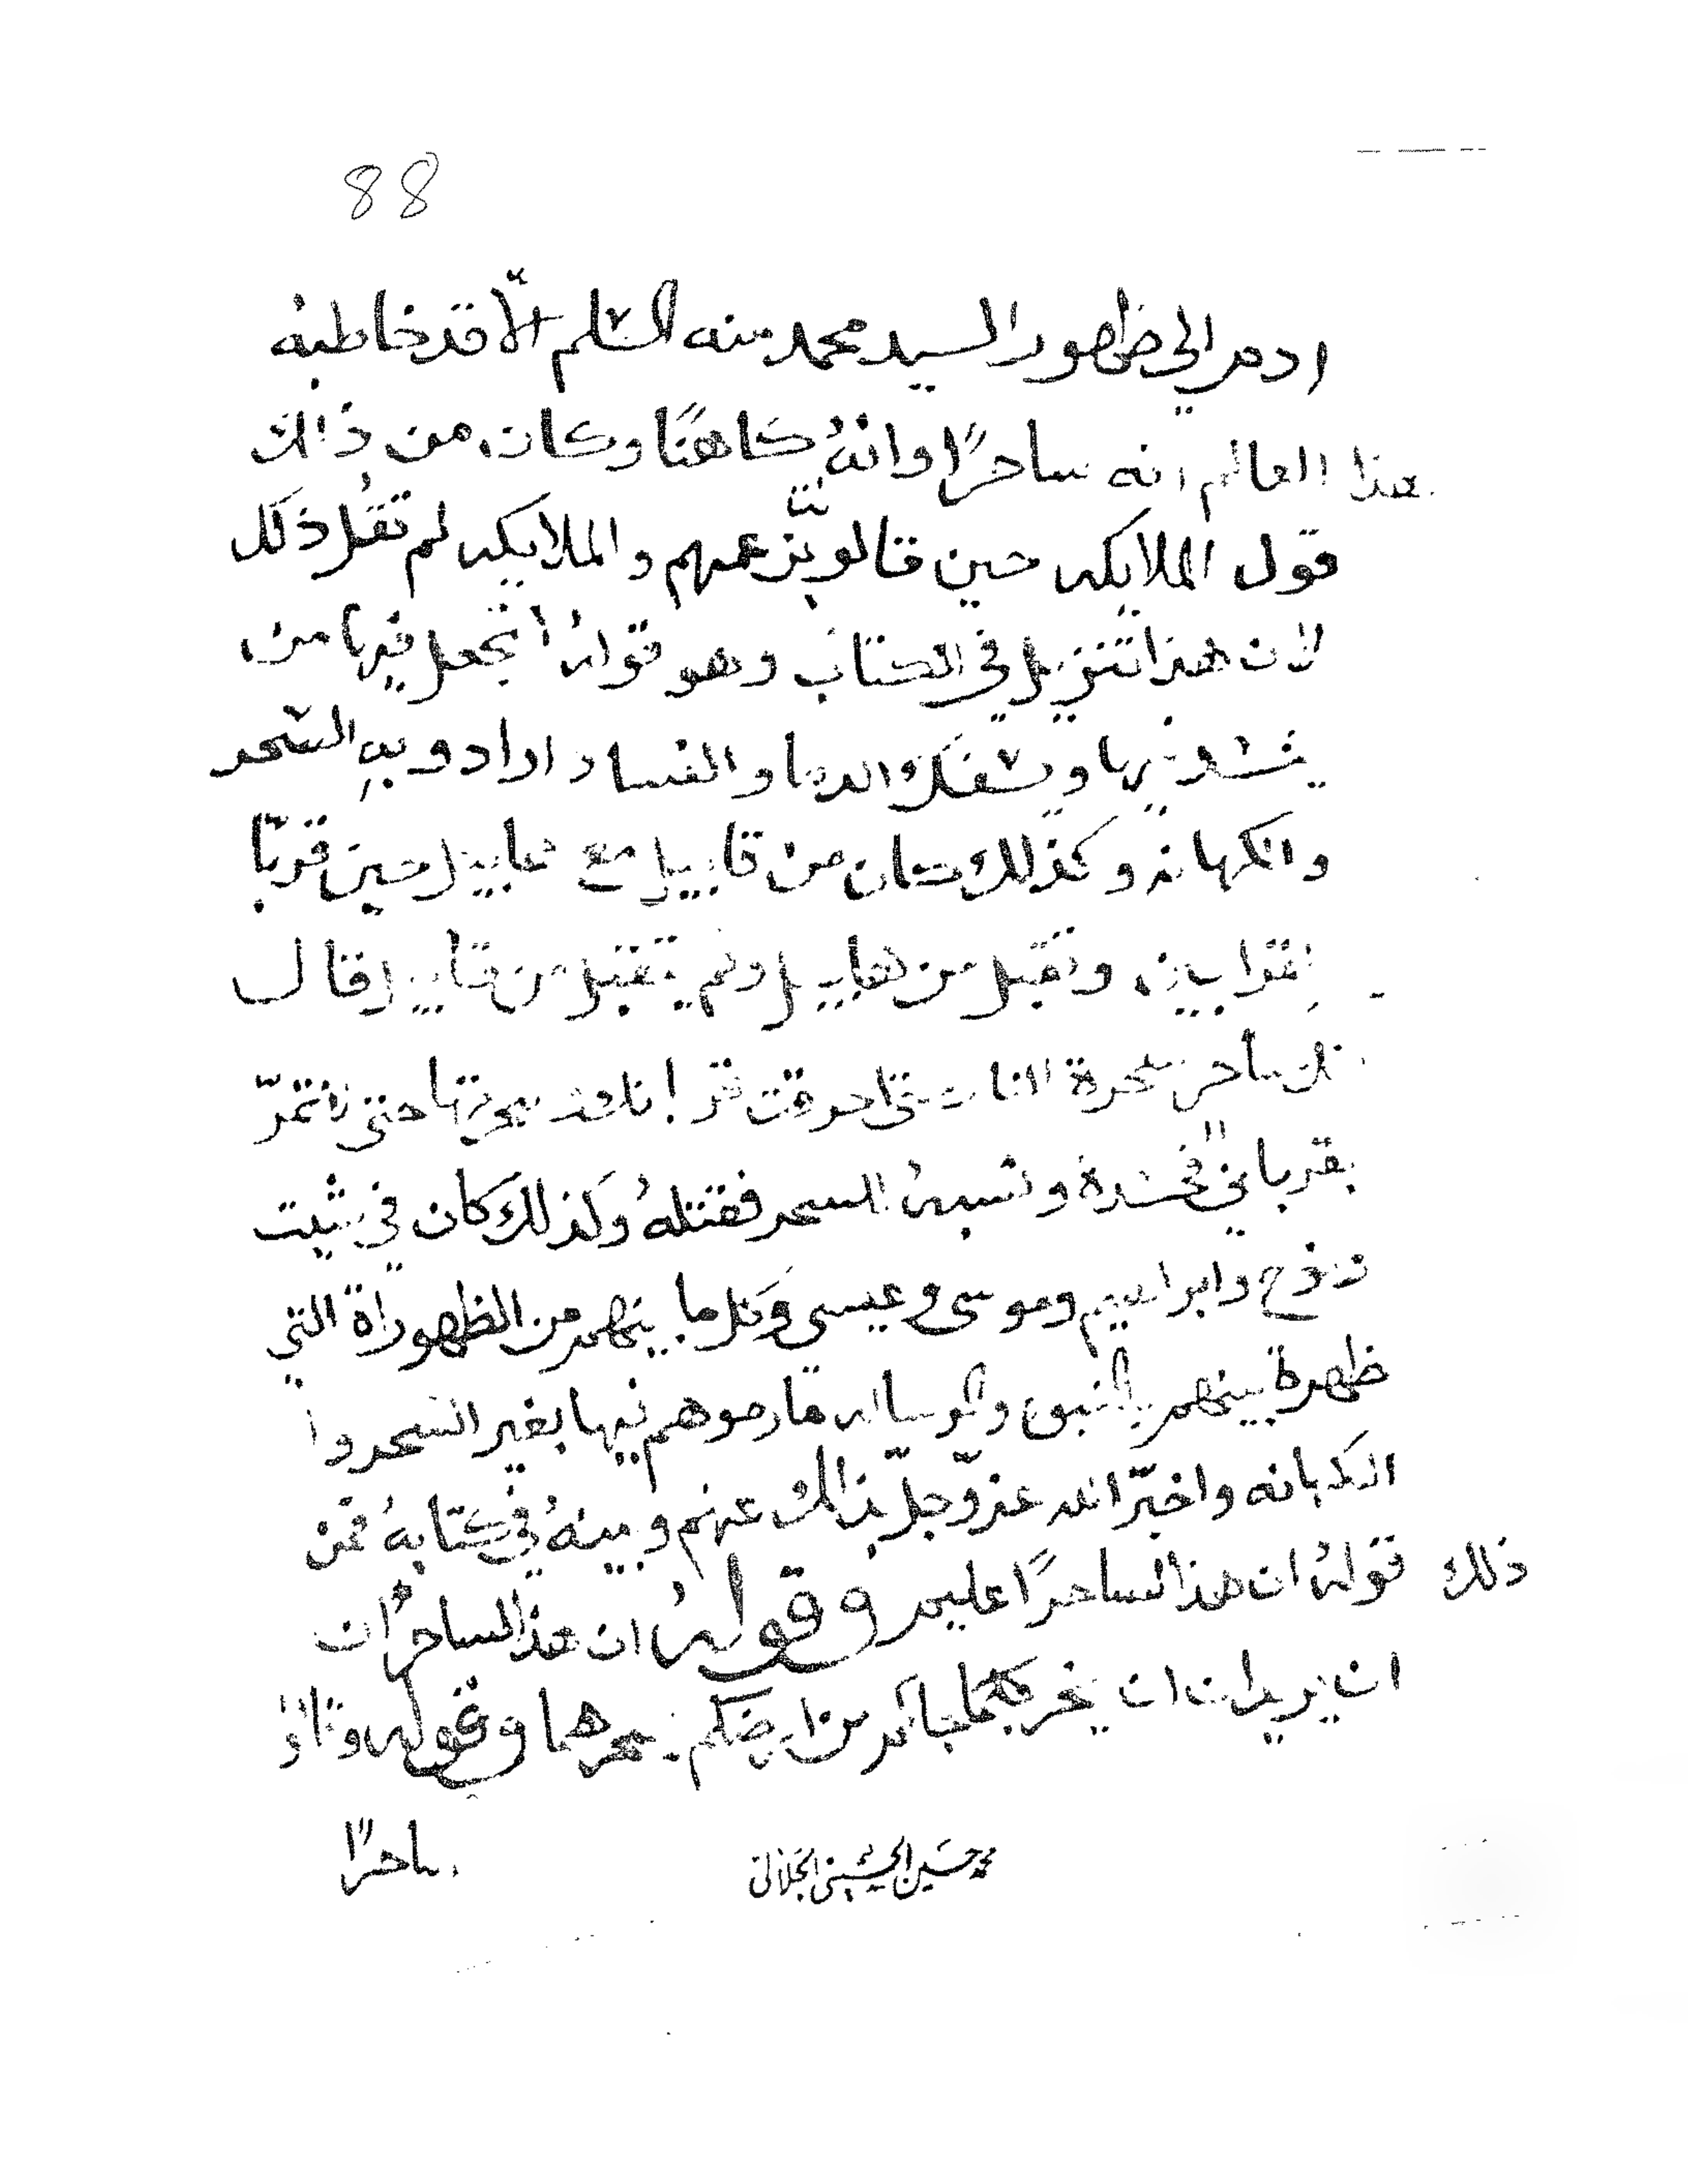 88
ادم الي ظهور السيد محمد منه السلم الّا قد خاطبه
هذا العالم انه ساحرًا وانهُ كاهنًا وكان من ذالك
قول الملايكه حين قالو بزعمهم والملايكه لم تقُل ذلك
لان هذا تنزيل في الكتاب وهو قولهُ اتجعل فيها من
يفسد فيها ويسفك الدما والفساد ارادو بهِ السحر
والكهانه وكذلك كان من قابيل مع هابيل حين قربّا
القرابين وتقبل من هابيل ولم يتقبل من قابيل وقال
ساحر سحرة النار حتى احرقت
بقرباني فحسدهُ ونسبهُ السحر فقتلهُ وكذلك كان في شيت
ونوح وابراهيم وموسى وعيسى وكل ما بينهم من الظهوراة التي
ظهرة بينهم بالنبوه والرساله مارموهم فيها بغير السحر وا
الكهانه واخبّر الله عزّوجلّ بذالك عنهم وبينهُ في كتابهُ فمن
ذلك قولهُ ان هذا لساحرًا عليم وقولهُ ان هذا لساحران
ان يريدان ان يخرجاكم من ارضكم بسحرهما وقوله وقالو
ساحرًا
محمد حسين الحسيني الجلالي